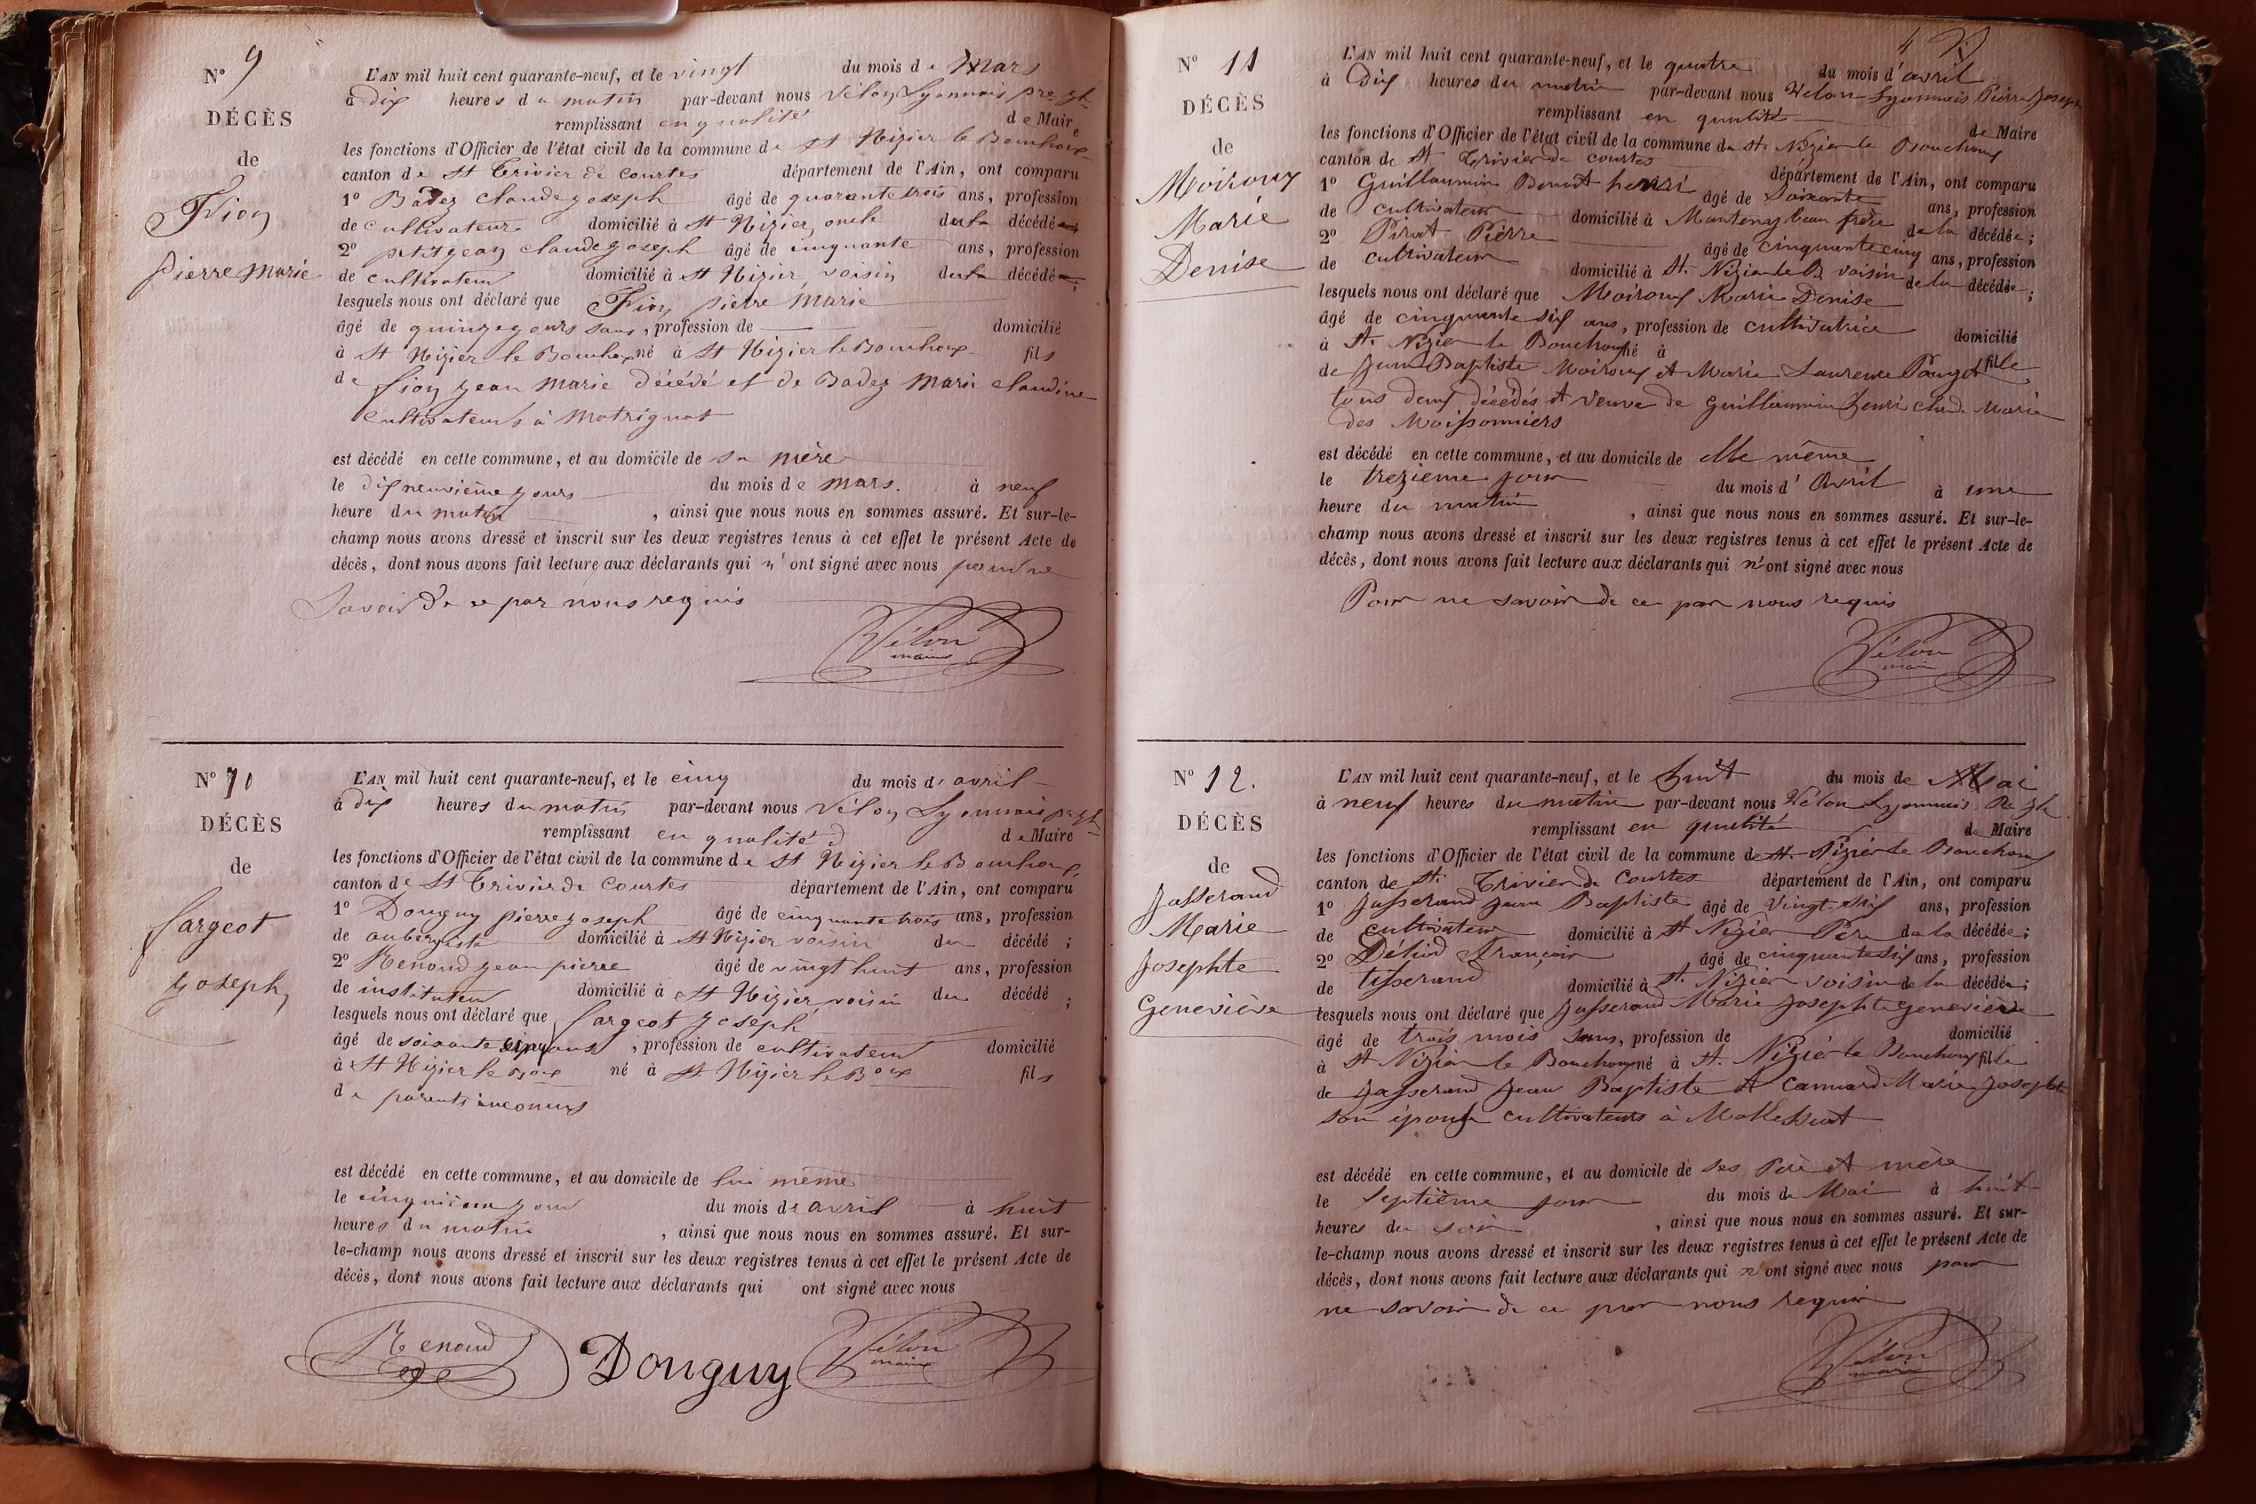 N° 9
DÉCÈS
de
Fion
Pierre Marie
L'AN mil huit cent quarante-neuf, et le vingt du mois de Mars
à dix heures du matin par-devant nous Vélon Lyonnais
remplissant en qualité de Maire
les fonctions d'Officier de l'état civil de la commune de St Nizier le Bouchoux
canton de St Trivier de Courtes département de l'Ain, ont comparu
1° Badez Claude Joseph âgé de quarante trois ans, profession
de cultivateur domicilié à St Nizier, oncle du décédé
2° petitjean Claude Joseph âgé de cinquante ans, profession
de cultivateur domicilié à St Nizier, voisin du décédé
lesquels nous ont déclaré que Fion pierre Marie
âgé de quinze jours ans, profession de domicilié
à St Nizier le Bouchoux né à St Nizier le Bouchoux fils
de fion Jean Marie décédé et de Badez Marie Claudine
cultivateurs à Matrignat
est décédé en cette commune, et au domicile de sa mère
le dix neuvième jours du mois de mars. à neuf
heure du matin , ainsi que nous nous en sommes assuré. Et sur-le-
champ nous avons dressé et inscrit sur les deux registres tenus à cet effet le présent Acte de
décès, dont nous avons fait lecture aux déclarants qui n'ont signé avec nous pour ne
Savoir de ce par nous requis
Vélon
maire
N° 10
DÉCÈS
de
fargeot
Joseph
L'AN mil huit cent quarante-neuf, et le cinq du mois d'avril
à dix heures du matin par-devant nous Vélon Lyonnais
remplissant en qualité de Maire
les fonctions d'Officier de l'état civil de la commune de St Nizier le Bouchoux
canton de St Trivier de Courtes département de l'Ain, ont comparu
1° Douguy pierre Joseph âgé de cinquante trois ans, profession
de aubergiste domicilié à St Nizier voisin du décédé ;
2° Renoud Jean pierre âgé de vingt huit ans, profession
de instituteur domicilié à St Nizier, voisin du décédé ;
lesquels nous ont déclaré que fargeot Joseph
âgé de soixante cinq ans , profession de cultivateur domicilié
à St Nizier le Boux né à St Nizier le Boux fils
de parents inconnus
est décédé en cette commune, et au domicile de lui même
le cinquième jour du mois d'avril à huit
heures du matin , ainsi que nous nous en sommes assuré. Et sur-
le-champ nous avons dressé et inscrit sur les deux registres tenus à cet effet le présent Acte de
décès, dont nous avons fait lecture aux déclarants qui ont signé avec nous
Renoud Douguy Vélon
maire
N° 11
DÉCÈS
de
Moiroux
Marie
Denise
L'AN mil huit cent quarante-neuf, et le quatre du mois d'avril
à Dix heures du matin par-devant nous Vélon Lyonnais Pierre Joseph
remplissant en qualité de Maire
les fonctions d'Officier de l'état civil de la commune de St Nizier le Bouchoux
canton de St Trivier de courtes département de l'Ain, ont comparu
1° Guillaumin Benoit henri âgé de Soixante ans, profession
de cultivateur domicilié à Mantenay beau frère de la décédée ;
2° Pirat Pierre âgé de cinquante cinq ans, profession
de cultivateur domicilié à St Nizier le B voisin de la décédée ;
lesquels nous ont déclaré que Moiroux Marie Denise
âgé de cinquante six ans, profession de cultivatrice domicilié
à St Nizier le Bouchoux né à fille
de Jean Baptiste Moiroux et Marie Laurence Pauget
tous deux décédés et veuve de Guillaumin henri Marie
des Moissonniers
est décédé en cette commune, et au domicile de elle même
le trezieme jour du mois d'Avril à une
heure du matin , ainsi que nous nous en sommes assuré. Et sur-le-
champ nous avons dressé et inscrit sur les deux registres tenus à cet effet le présent Acte de
décès, dont nous avons fait lecture aux déclarants qui n'ont signé avec nous
Pour ne savoir de ce par nous requis
Vélon
maire
N° 12.
DÉCÈS
de
Jasserand
Marie
Josephte
Geneviève
L'AN mil huit cent quarante-neuf, et le huit du mois de Mai
à neuf heures du matin par-devant nous Vélon Lyonnais
remplissant en qualité de Maire
les fonctions d'Officier de l'état civil de la commune de St Nizier le Bouchoux
canton de St Trivier de Courtes département de l'Ain, ont comparu
1° Jasserand Jean Baptiste âgé de vingt six ans, profession
de cultivateur domicilié à St Nizier Père de la décédée ;
2° François âgé de cinquante six ans, profession
de tisserand domicilié à St Nizier voisin de la décédée ;
lesquels nous ont déclaré que Jasserand Marie Josephte Geneviève
âgé de trois mois ans, profession de domicilié
à St Nizier le Bouchoux né à St Nizié le Bouchoux fille
de Jasserand Jean Baptiste et Cannard Marie Josephte
son épouse cultivateurs à
est décédé en cette commune, et au domicile de ses Père et mère
le septième jour du mois de Mai à huit
heures du soir , ainsi que nous nous en sommes assuré. Et sur-
le-champ nous avons dressé et inscrit sur les deux registres tenus à cet effet le présent Acte de
décès, dont nous avons fait lecture aux déclarants qui n'ont signé avec nous pour
ne savoir de ce par nous requis
Vélon
maire